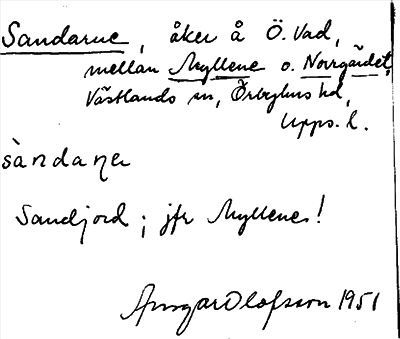 Sandarne, åker å Ö. Vad,
mellan Myllene o. Norrgärdet,
Västlands sn, Örbyhus hd,
Upps. l.
sàndaṇe
Sandjord; jfr Myllenes!
Ansgar Olofsson 1951